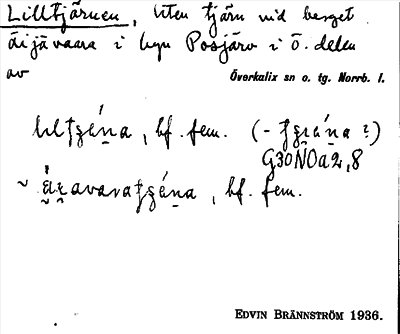 Lilltjärnen, liten tjärn vid berget
Äijävaara i byn Posjärv i ö. delen
av Överkalix sn o. tg. Norrb. l.
bf. fem.
G30NOa2,8
bf. fem.
EDVIN BRÄNNSTRÖM 1936.